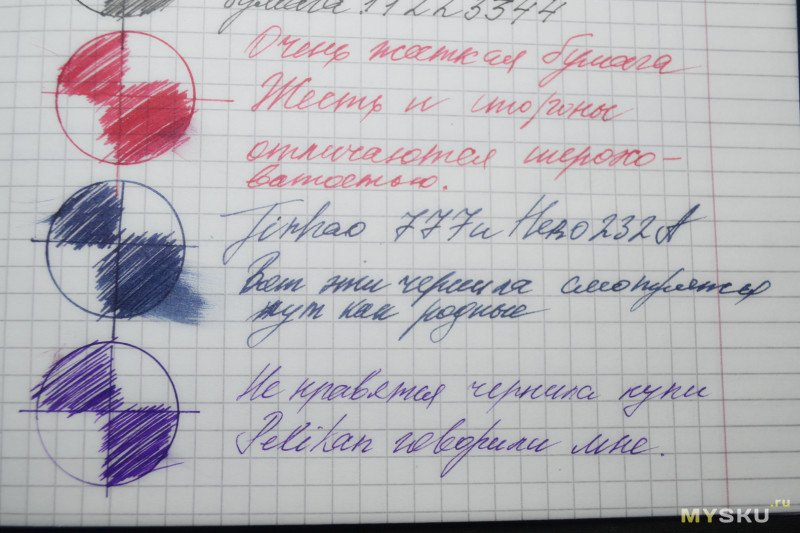 бумага !! 11223344
Очень жесткая бумага
Жесть и стороны
отличаются шерохо-
ватостью.
Jinhao 777 и Hero 232A
Вот эти чернила смотрятся
тут как родные
Не нравятся чернила купи
Pelikan говорили мне.
MYSKU.ru